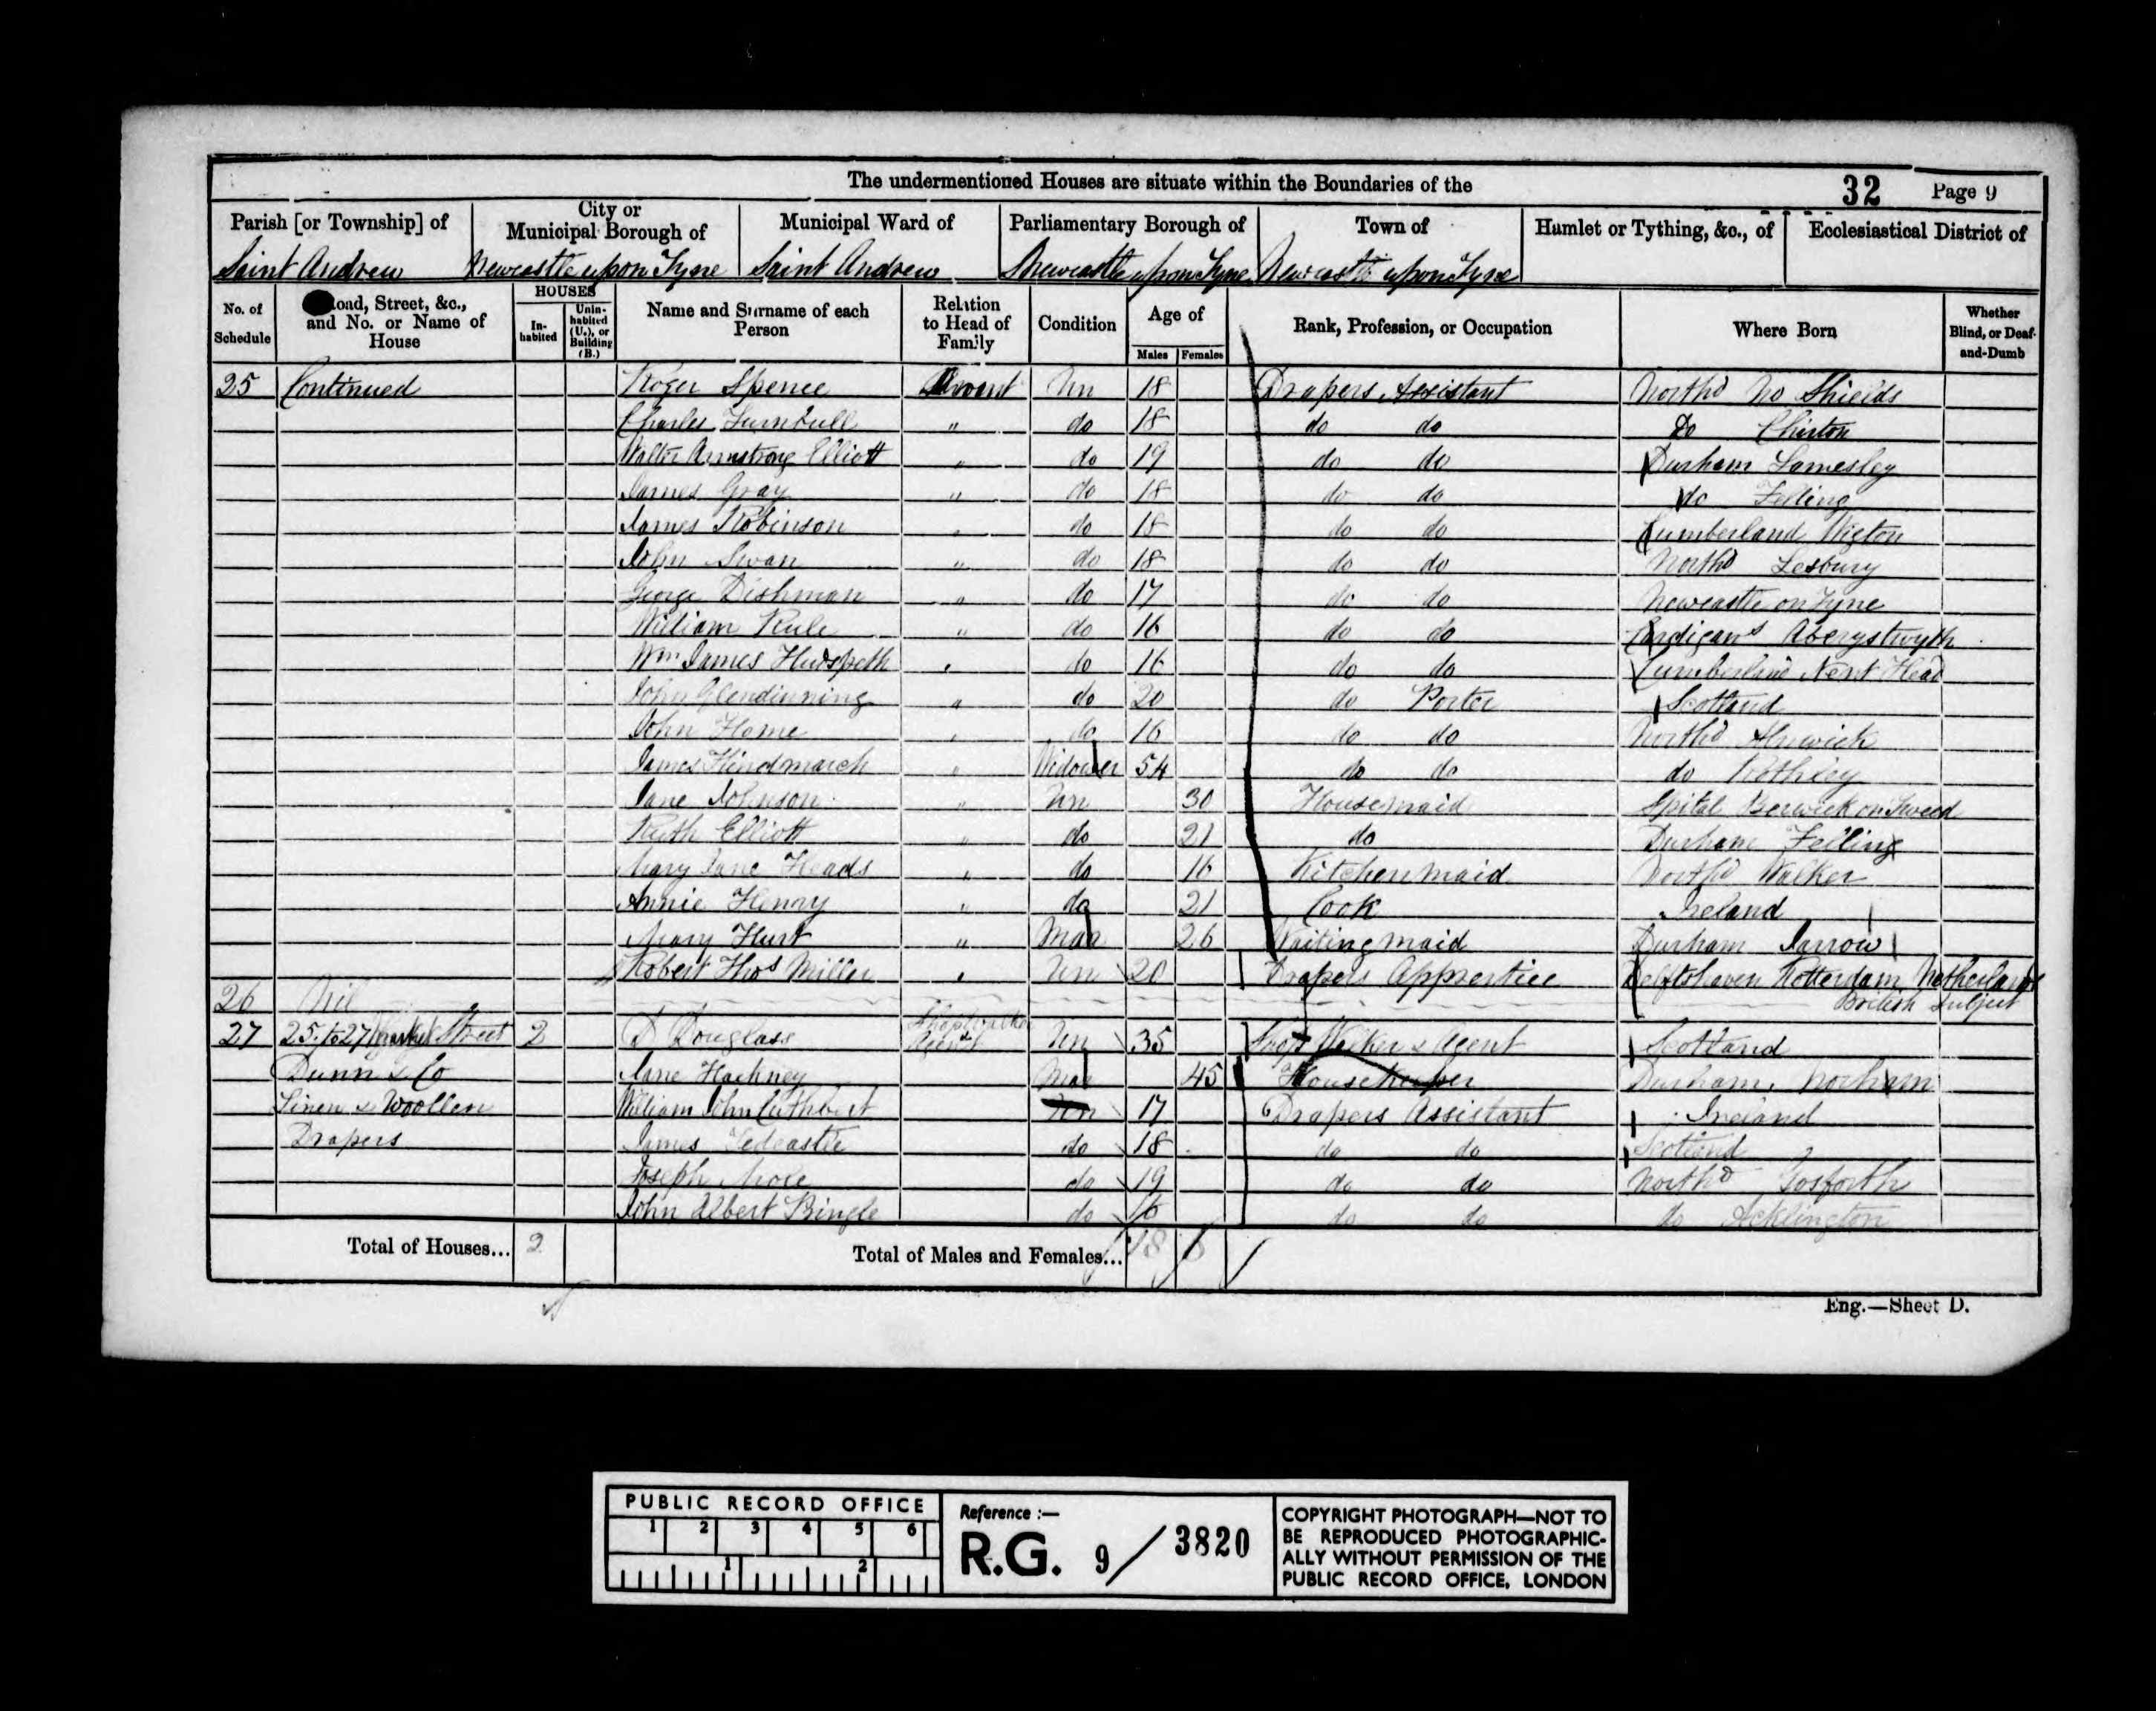 The undermentioned Houses are situate within the Boundaries of the 32 Page 9
Parish [or Township] of City or Municipal Borough of Municipal Ward of Parliamentary Borough of Town of Hamlet or Tything, &c., of Ecclesiastical District of
Saint Andrew Newcastle upon Tyne Saint Andrew Newcastle upon Tyne Newcastle upon Tyne
No. of Schedule Road, Street, &c., and No. or Name of House HOUSES Inhabited Uninhabited (U.), or Building (B.) Name and Surname of each Person Relation to Head of Family Condition Age of Males Females Rank, Profession, or Occupation Where Born Whether Blind, or Deaf-and-Dumb
25 Continued Roger Spence Servant Un 18 Drapers Assistant Northd No Shields
Charles Turnbull " do 18 do do Do Chirton
Walter Armstrong Elliott " do 19 do do Durham Lamesley
James Gray " do 18 do do do Felling
James Robinson " do 18 do do Cumberland Wigton
John Swan " do 18 do do Northd Lesbury
George Dishman " do 17 do do Newcastle on Tyne
William Rule " do 16 do do Cardigans Aberystwyth
Wm James Hudspeth " do 16 do do Cumberland Nent Head
John Glendinning " do 20 do Porter Scotland
John Home " do 16 do do Northd Alnwick
James Hindmarch " Widower 54 do do do Rothley
Jane Johnson " Un 30 Housemaid Spital Berwick on Tweed
Ruth Elliott " do 21 do Durham Felling
Mary Jane Heads " do 16 Kitchenmaid Northd Walker
Annie Henry " do 21 Cook Ireland
Mary Hunt " Mar 26 Waitingmaid Durham Jarrow
Robert Thos Miller " Un 20 Drapers Apprentice Delftshaven Rotterdam Netherlands
26 Nil British Subject
27 25 to 27 Market Street 2 D Douglass Shopwalker Agent Un 35 Shop Walker & Agent Scotland
Dunn & Co Jane Hackney Mar 45 Housekeeper Durham, Norham
Linen & Woollen William John Cuthbert Un 17 Drapers Assistant Ireland
Drapers James Tedcastle do 18 do do Scotland
Joseph More do 19 do do Northd Gosforth
John Albert Pringle do 16 do do do Acklington
Total of Houses... 2 Total of Males and Females... 18 6
Eng.—Sheet D.
PUBLIC RECORD OFFICE
1 2 3 4 5 6
1 2
Reference :—
R.G. 9 / 3820
COPYRIGHT PHOTOGRAPH—NOT TO
BE REPRODUCED PHOTOGRAPHIC-
ALLY WITHOUT PERMISSION OF THE
PUBLIC RECORD OFFICE, LONDON